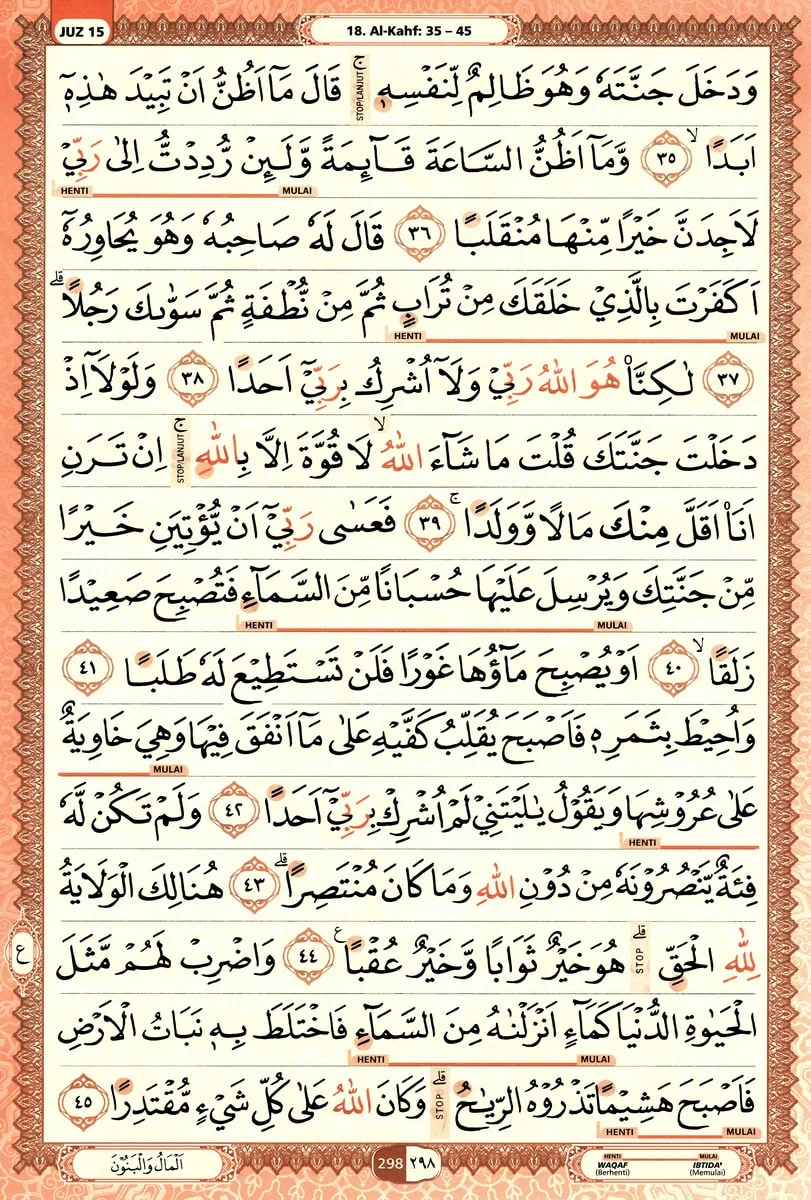 JUZ 15
18. Al-Kahf: 35 – 45
وَدَخَلَ جَنَّتَهٗ وَهُوَ ظَالِمٌ لِّنَفْسِهٖۚ STOP/LANJUT قَالَ مَآ اَظُنُّ اَنْ تَبِيْدَ هٰذِهٖٓ
اَبَدًاۙ ٣٥ وَّمَآ اَظُنُّ السَّاعَةَ قَاۤىِٕمَةً وَّلَىِٕنْ رُّدِدْتُّ اِلٰى رَبِّيْ
HENTI MULAI
لَاَجِدَنَّ خَيْرًا مِّنْهَا مُنْقَلَبًا ٣٦ قَالَ لَهٗ صَاحِبُهٗ وَهُوَ يُحَاوِرُهٗٓ
اَكَفَرْتَ بِالَّذِيْ خَلَقَكَ مِنْ تُرَابٍ ثُمَّ مِنْ نُّطْفَةٍ ثُمَّ سَوّٰىكَ رَجُلًاۗ
HENTI MULAI
٣٧ لٰكِنَّا۠ هُوَ اللّٰهُ رَبِّيْ وَلَآ اُشْرِكُ بِرَبِّيْٓ اَحَدًا ٣٨ وَلَوْلَآ اِذْ
دَخَلْتَ جَنَّتَكَ قُلْتَ مَا شَاۤءَ اللّٰهُ ۙ لَا قُوَّةَ اِلَّا بِاللّٰهِ ۚ STOP/LANJUT اِنْ تَرَنِ
اَنَا۠ اَقَلَّ مِنْكَ مَالًا وَّوَلَدًاۚ ٣٩ فَعَسٰى رَبِّيْٓ اَنْ يُّؤْتِيَنِ خَيْرًا
مِّنْ جَنَّتِكَ وَيُرْسِلَ عَلَيْهَا حُسْبَانًا مِّنَ السَّمَاۤءِ فَتُصْبِحَ صَعِيْدًا
HENTI MULAI
زَلَقًاۙ ٤٠ اَوْ يُصْبِحَ مَاۤؤُهَا غَوْرًا فَلَنْ تَسْتَطِيْعَ لَهٗ طَلَبًا ٤١
وَاُحِيْطَ بِثَمَرِهٖ فَاَصْبَحَ يُقَلِّبُ كَفَّيْهِ عَلٰى مَآ اَنْفَقَ فِيْهَا وَهِيَ خَاوِيَةٌ
MULAI
عَلٰى عُرُوْشِهَا وَيَقُوْلُ يٰلَيْتَنِيْ لَمْ اُشْرِكْ بِرَبِّيْٓ اَحَدًا ٤٢ وَلَمْ تَكُنْ لَّهٗ
HENTI
فِئَةٌ يَّنْصُرُوْنَهٗ مِنْ دُوْنِ اللّٰهِ وَمَا كَانَ مُنْتَصِرًاۗ ٤٣ هُنَالِكَ الْوَلَايَةُ
لِلّٰهِ الْحَقِّۗ STOP هُوَ خَيْرٌ ثَوَابًا وَّخَيْرٌ عُقْبًا ࣖ ٤٤ وَاضْرِبْ لَهُمْ مَّثَلَ
ع
الْحَيٰوةِ الدُّنْيَا كَمَاۤءٍ اَنْزَلْنٰهُ مِنَ السَّمَاۤءِ فَاخْتَلَطَ بِهٖ نَبَاتُ الْاَرْضِ
HENTI MULAI
فَاَصْبَحَ هَشِيْمًا تَذْرُوْهُ الرِّيٰحُۗ STOP وَكَانَ اللّٰهُ عَلٰى كُلِّ شَيْءٍ مُّقْتَدِرًا ٤٥
HENTI MULAI
اَلْمَالُ وَالْبَنُوْنَ
298 ٢٩٨
HENTI MULAI
WAQAF (Berhenti) IBTIDA' (Memulai)